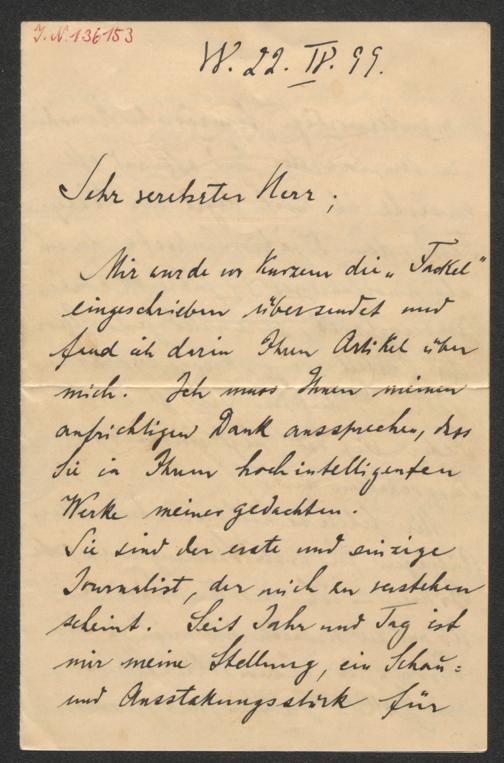 J.N. 136153
W. 22. IV. 99.
Sehr verehrter Herr;
Mir wurde vor Kurzem die „Fackel"
eingeschrieben übersendet und
fand ich darin Ihren Artikel über
mich. Ich muss Ihnen meinen
aufrichtigen Dank aussprechen, dass
Sie in Ihrem hochintelligenten
Werke meiner gedachten.
Sie sind der erste und einzige
Journalist, der mich zu verstehen
scheint. Seit Jahr und Tag ist
mir meine Stellung, ein Schau=
und Ausstakungsstück für